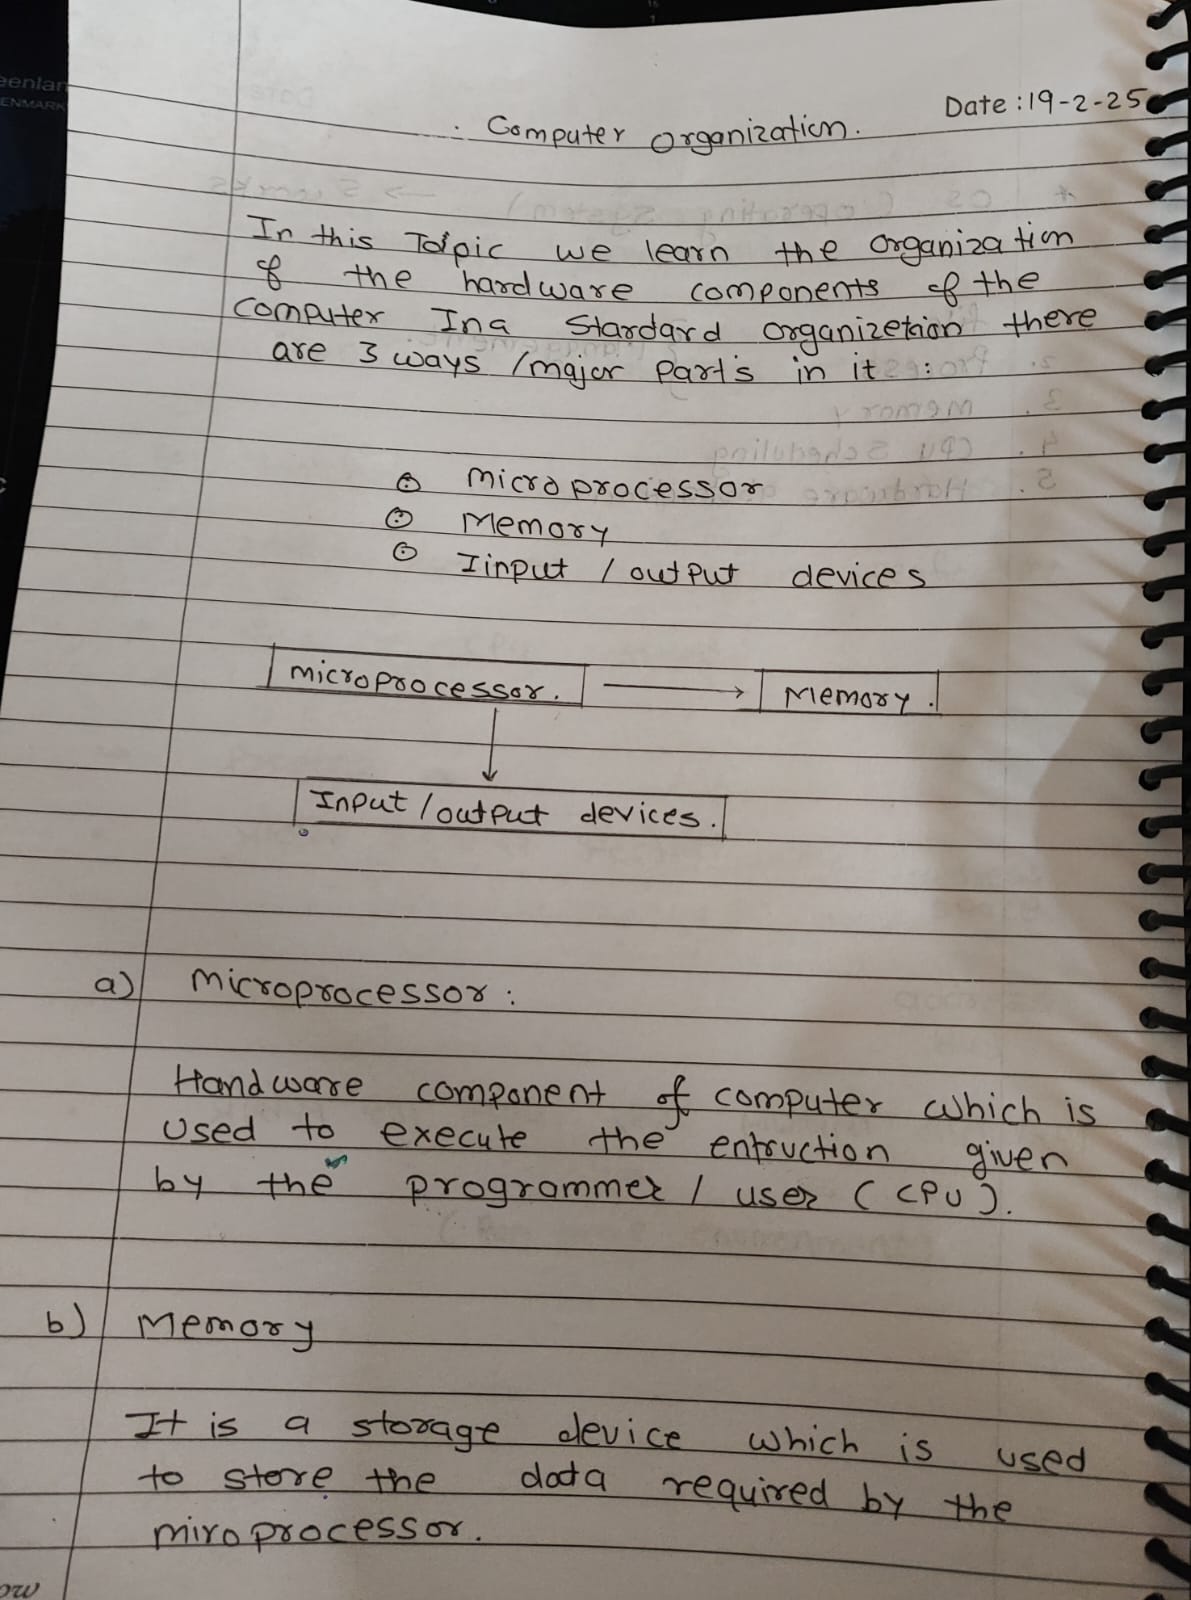 Date : 19-2-25
Computer organization.
In this Topic we learn the organization
of the hardware components of the
computer In a Stardard organizetaion there
are 3 ways / major Parts in it :
microprocessor
Memory
Iinput / output devices
microprocessor. → Memory.
↓
Input / output devices.
a) microprocessor :
Handware component of computer which is
used to execute the entruction given
by the programmer / user ( CPU ).
b) Memory
It is a storage device which is used
to store the data required by the
miroprocessor.